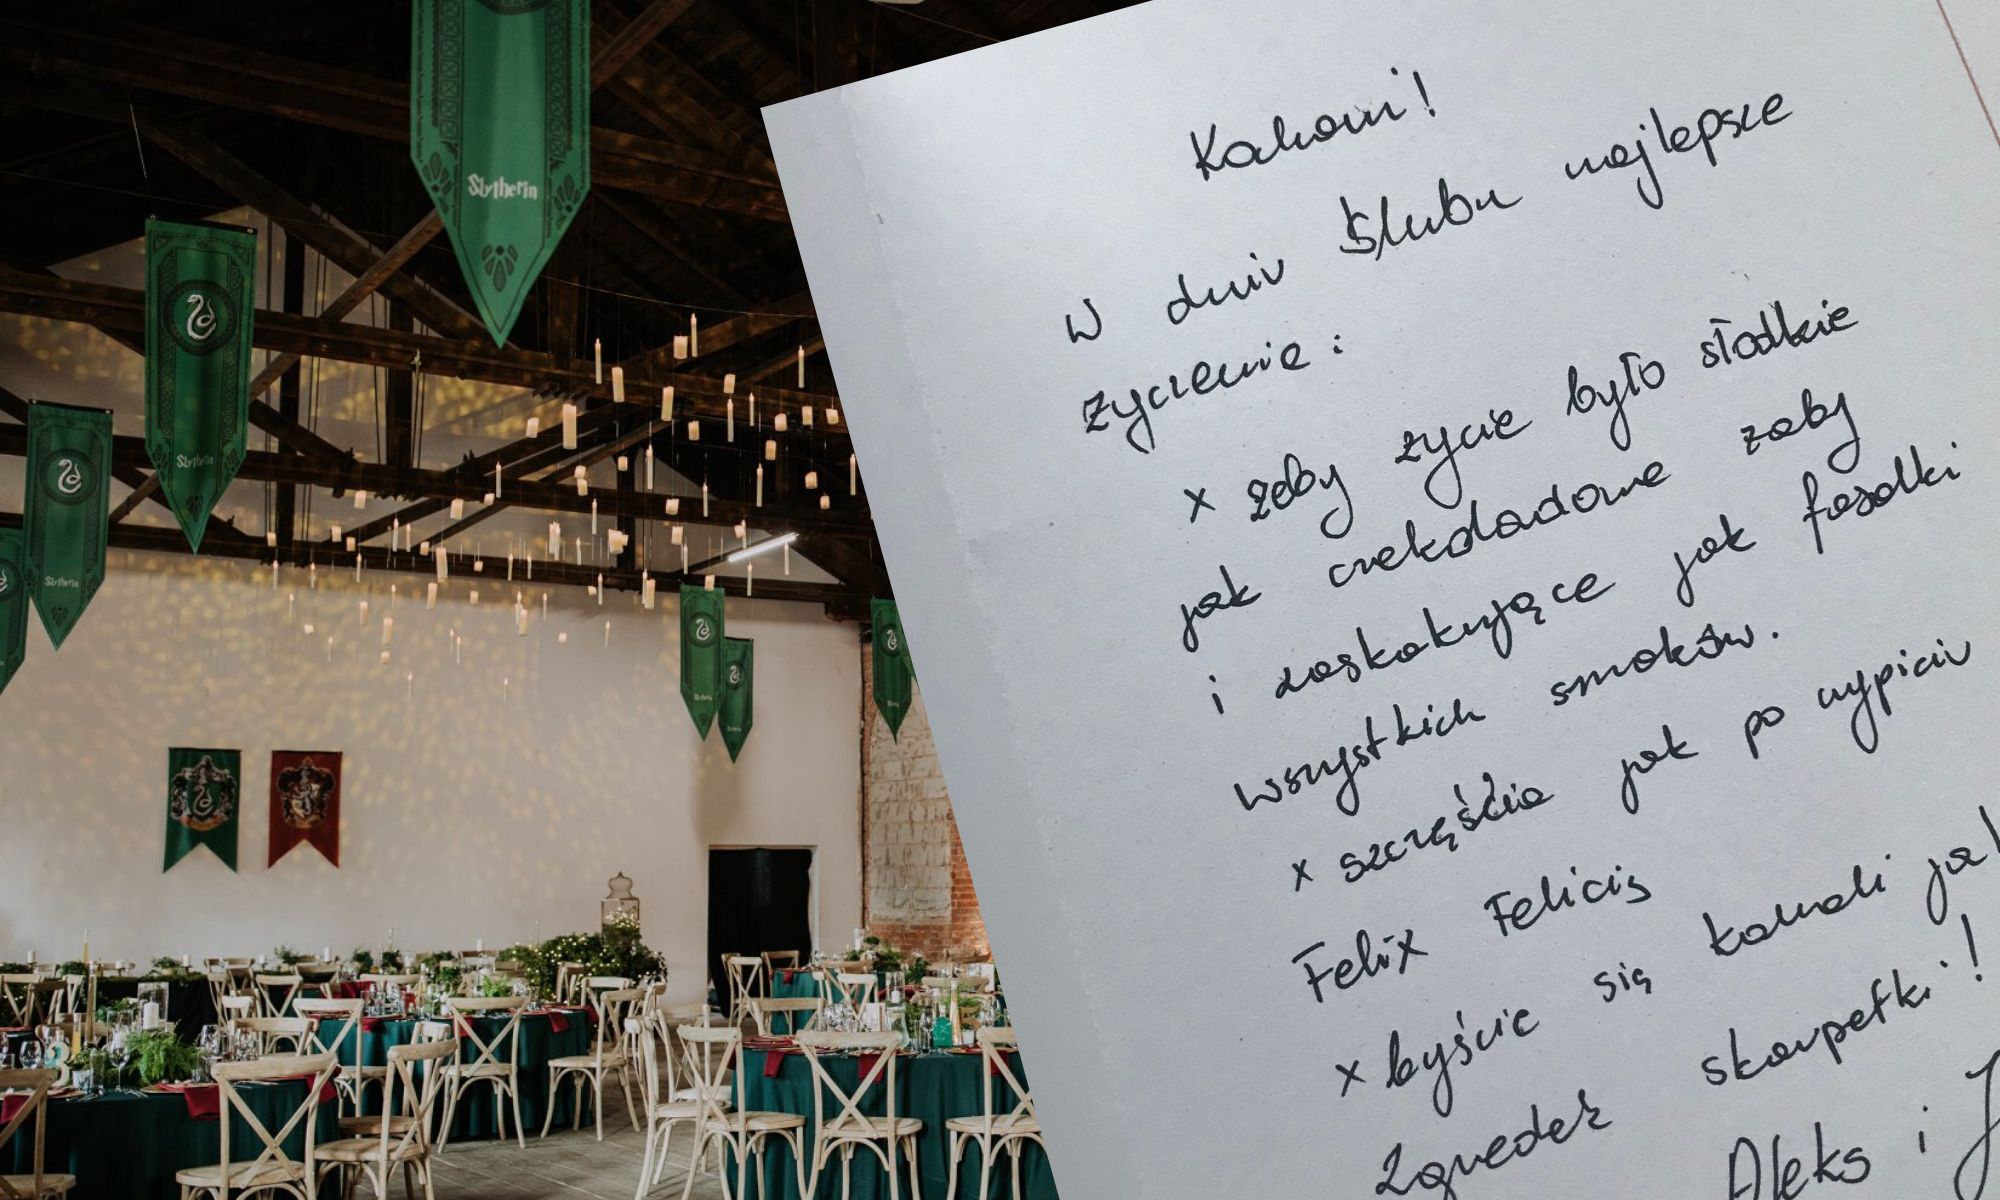 Slytherin
Slytherin
Slytherin
Kochani!
W dniu Ślubu najlepsze
życzenie:
x żeby życie było słodkie
jak czekoladowe żaby
i zaskakujące jak fasolki
wszystkich smaków.
x szczęścia jak po wypiciu
Felix Felicis
x byście się kochali jak
Zgredek skarpetki!
Aleks i J